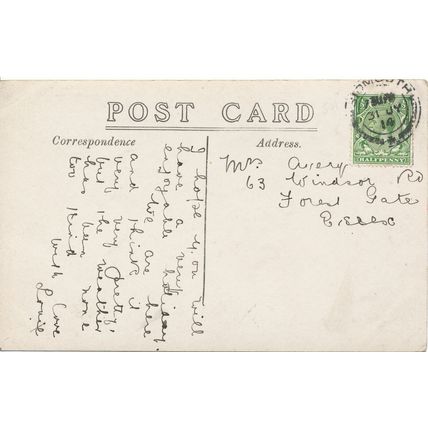 POST CARD
Correspondence
Address.
HALFPENNY
Mrs Avery
63 Windsor Rd
Forest Gate
Essex
I hope you will
have a very
enjoyable holiday.
We are here
and I think it
very pretty,
but the weather
has been none
too kind
with love
Louie